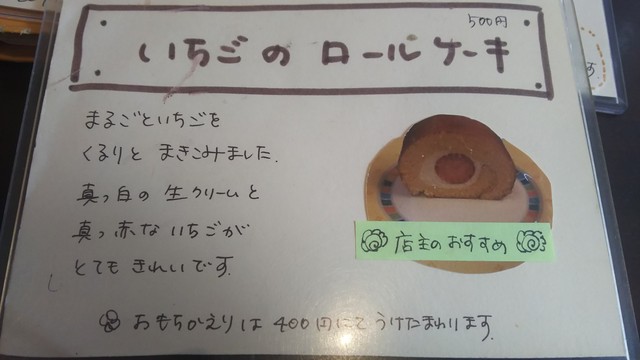 500円
いちごの ロールケーキ
まるごといちごを
くるりと まきこみました.
真っ白の 生クリームと
真っ赤な いちごが
とても きれいです.
店主のおすすめ
おもちかえりは 400円にて うけたまわります.